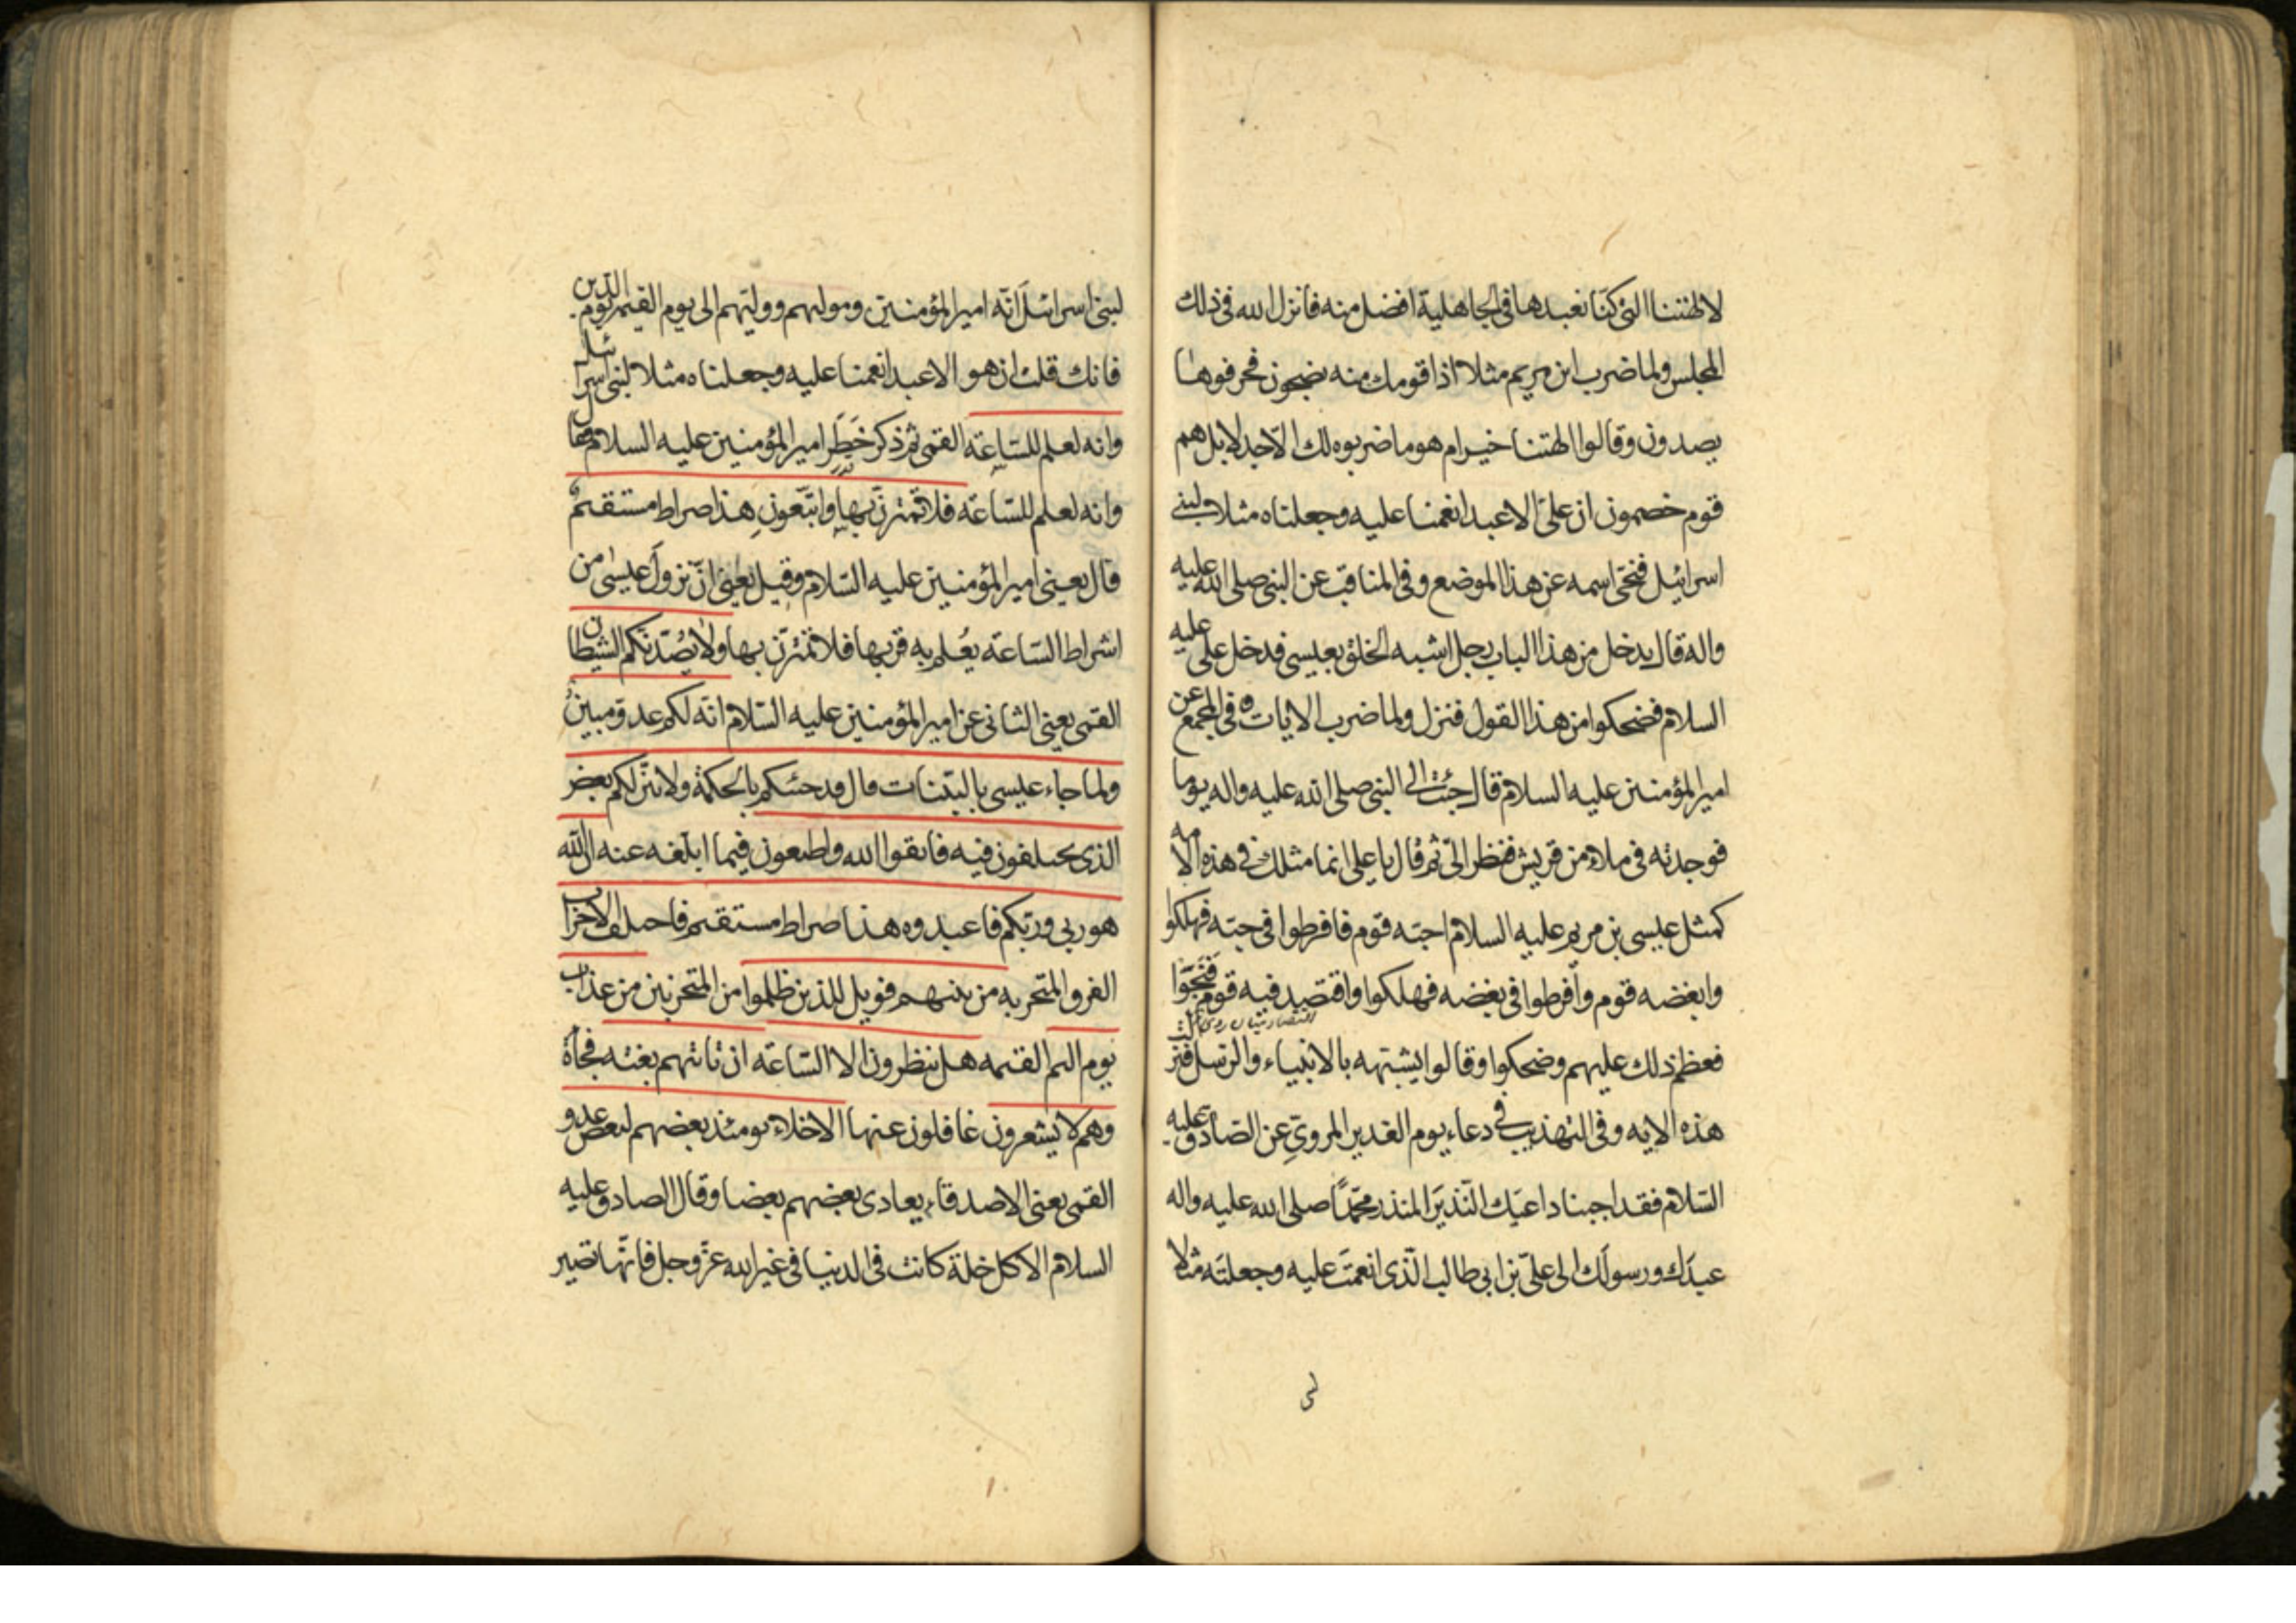 لالهتنا التی کنا نعبدها فی الجاهلیة افضل منه فانزل الله فی ذلك
المجلس ولما ضرب ابن مریم مثلا اذا قومك منه یضجون فحرفوها
یصدون وقالوا الهتنا خیر ام هو ما ضربوه لك الا جدلا بل هم
قوم خصمون ان علیّ الا عبد انعمنا علیه وجعلناه مثلا لبنی
اسرائیل فنحی اسمه عن هذا الموضع وفی المناقب عن النبی صلی الله علیه
واله قال یدخل من هذا الباب رجل اشبه الخلق بعیسی فدخل علی علیه
السلام فضحکوا من هذا القول فنزل ولما ضرب الایات وفی المجمع عن
امیر المؤمنین علیه السلام قال جئت الی النبی صلی الله علیه واله یوما
فوجدته فی ملاء من قریش فنظر الیّ ثم قال یا علی انما مثلك فی هذه الامه
کمثل عیسی بن مریم علیه السلام احبّه قوم فافرطوا فی حبّه فهلکوا
وابغضه قوم وافرطوا فی بغضه فهلکوا واقتصد فیه قوم فَنَجَوّا
فعظم ذلك علیهم وضحکوا وقالوا یشبّهه بالانبیاء والرسل فنزلت
هذه الایه وفی التهذیب فی دعاء یوم الغدیر المرویّ عن الصادق علیه
السّلام فقد اجبنا داعیَك النّذیرَ المنذر محمّدًا صلی الله علیه واله
عبدَك ورسولَك الی علیّ بن ابی طالب الّذی انعمتَ علیه وجعلتَه مثلا
لبنی اسرائیل اَنّه امیر المؤمنین ومولیهم وولیّهم الی یوم القیمه یوم الدین
فانك قلت ان هو الا عبد انعمنا علیه وجعلناه مثلا لبنی اسرائیل
وانه لعلم للسّاعة القمی ثم ذکر خَطَر امیر المؤمنین علیه السلام فقال
وانه لعلم للسّاعة فلا تمترنّ بها واتّبعونِ هذا صراط مستقیمٌ
قال یعنی امیر المؤمنین علیه السّلام وقیل یعنی انّ نزولَ عیسٰی من
اشراط السّاعة یُعلم به قربها فلا تمترنّ بها ولا یصُدّنّکم الشیطان
القمی یعنی الثانی عن امیر المؤمنین علیه السّلام انّه لکم عدوّ مبینٌ
ولما جاء عیسی بالبیّنات قال قد جئتکم بالحکمة ولابیّن لکم بعض
الذی تختلفون فیه فاتقوا الله واطیعون فیما ابلّغه عنه ان الله
هو ربی وربّکم فاعبدوه هذا صراط مستقیم فاختلف الاحزاب
الفرق المتحزبه من بینهم فویل للذین ظلموا من المتحزبین من عذاب
یوم الیم القیمه هل ینظرون الا السّاعة ان تاتیهم بغتة فجأة
وهم لا یشعرون غافلون عنها الاخلاء یومئذ بعضهم لبعض عدو
القمی یعنی الاصدقاء یعادی بعضهم بعضا وقال الصادق علیه
السلام الا کل خلة کانت فی الدنیا فی غیر الله عزّ وجل فانّها تصیر